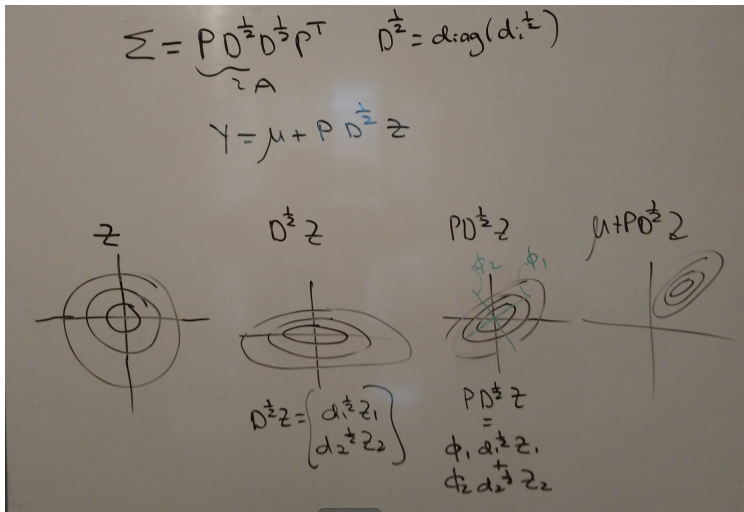 Σ = P D^{1/2} D^{1/2} P^T    D^{1/2} = diag(d_i^{1/2})
A
Y = μ + P D^{1/2} Z
Z    D^{1/2} Z    P D^{1/2} Z    μ + P D^{1/2} Z
ϕ_2    ϕ_1
D^{1/2} Z = ( d_1^{1/2} Z_1
d_2^{1/2} Z_2 )
P D^{1/2} Z
=
ϕ_1 d_1^{1/2} Z_1
ϕ_2 d_2^{1/2} Z_2